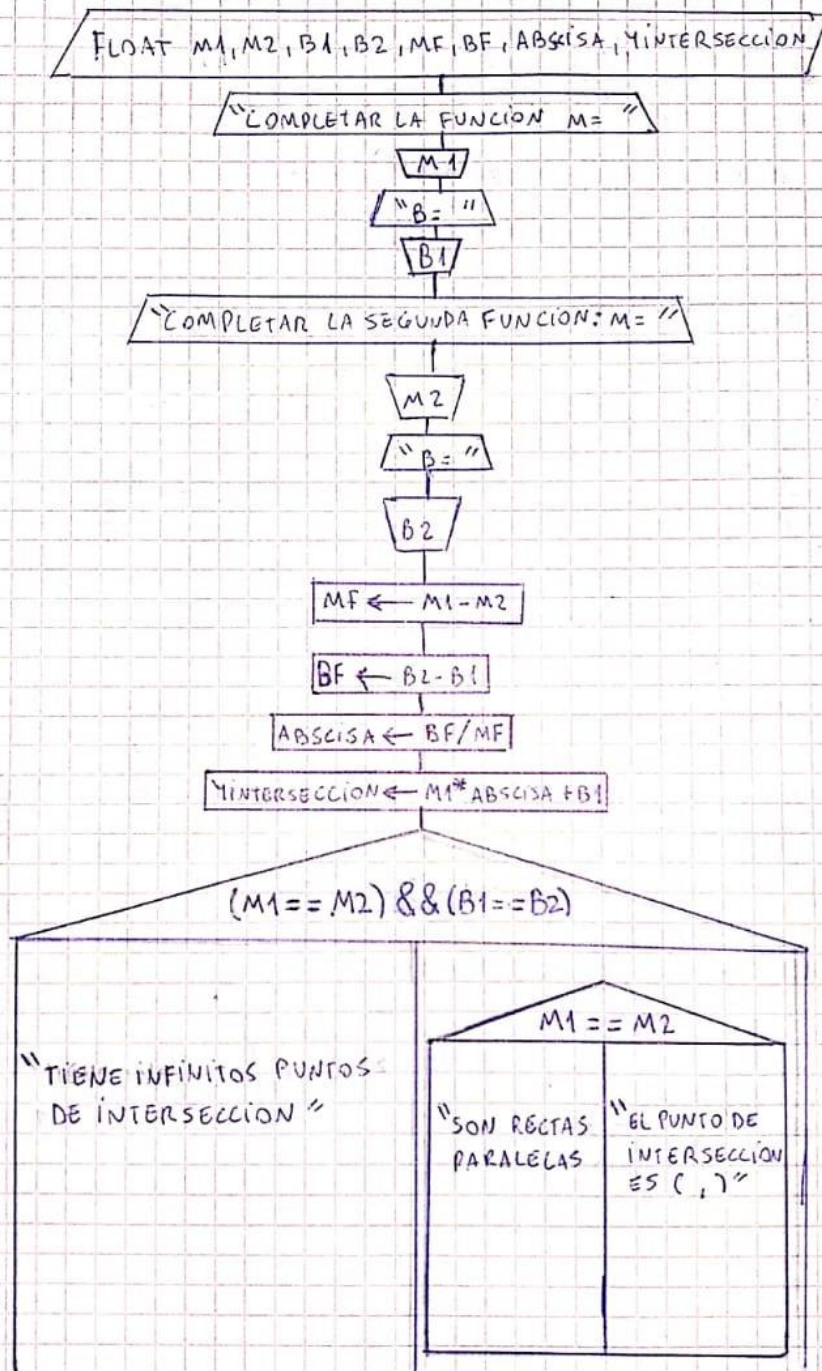 FLOAT M1, M2, B1, B2, MF, BF, ABSCISA, YINTERSECCION
"COMPLETAR LA FUNCION M= "
M1
"B= "
B1
"COMPLETAR LA SEGUNDA FUNCION: M= "
M2
"B= "
B2
MF ← M1-M2
BF ← B2-B1
ABSCISA ← BF/MF
YINTERSECCION ← M1*ABSCISA+B1
(M1==M2)&&(B1==B2)
"TIENE INFINITOS PUNTOS
DE INTERSECCION"
M1==M2
"SON RECTAS
PARALELAS
"EL PUNTO DE
INTERSECCION
ES ( , )"